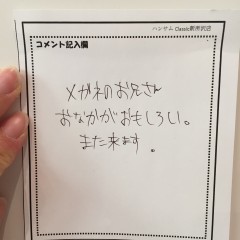 ハンサム Classic新所沢店
コメント記入欄
メガネのお兄さん
おなかがおもしろい。
また来ます。